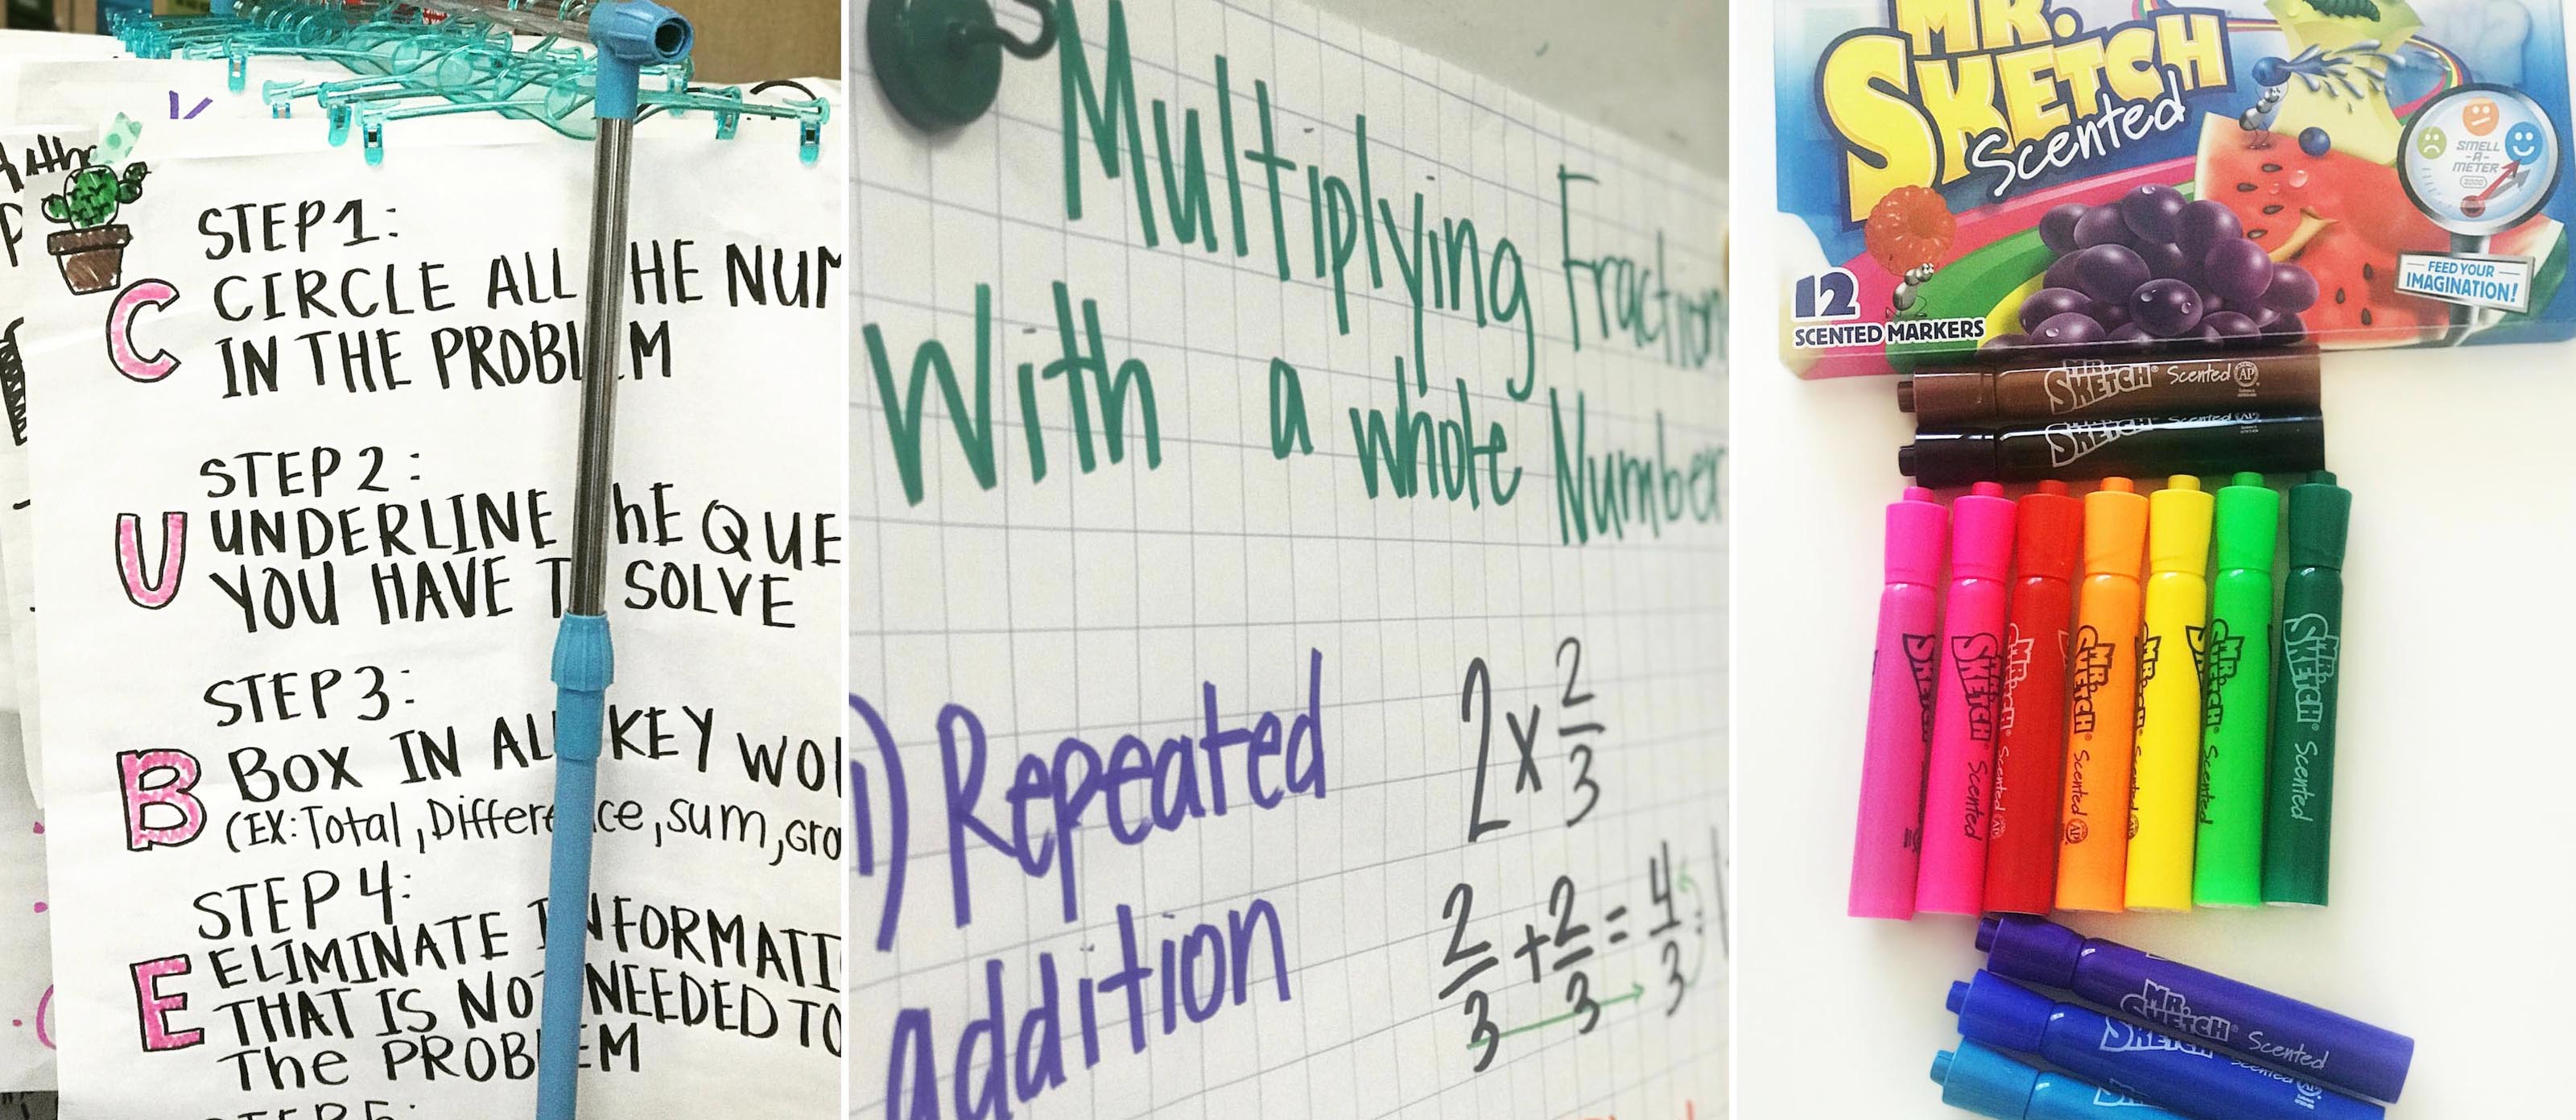 STEP 1:
C CIRCLE ALL HE NUM
IN THE PROBL M
STEP 2:
U UNDERLINE hE QUE
YOU HAVE T SOLVE
STEP 3:
B BOX IN ALL KEY WOR
(EX: Total, Differe ce, sum, Gro
STEP 4:
E ELIMINATE INFORMATI
THAT IS NO NEEDED TO
The PROB EM
STEP 5:
Multiplying Fraction
With a whole Number
1) Repeated
addition
2 x 2/3
2/3 + 2/3 = 4/3
MR.
SKETCH
Scented
SMELL
-A-
METER
2000
FEED YOUR
IMAGINATION!
12
SCENTED MARKERS
MR. SKETCH Scented AP
SKETCH Scented
SKETCH
SKETCH Scented
MR. SKETCH Scented AP
MR. SKETCH Scented AP
MR. SKETCH Scented
MR. SKETCH Scented
MR. SKETCH Scented
MR. SKETCH Scented
SKETCH Scented
SKETCH